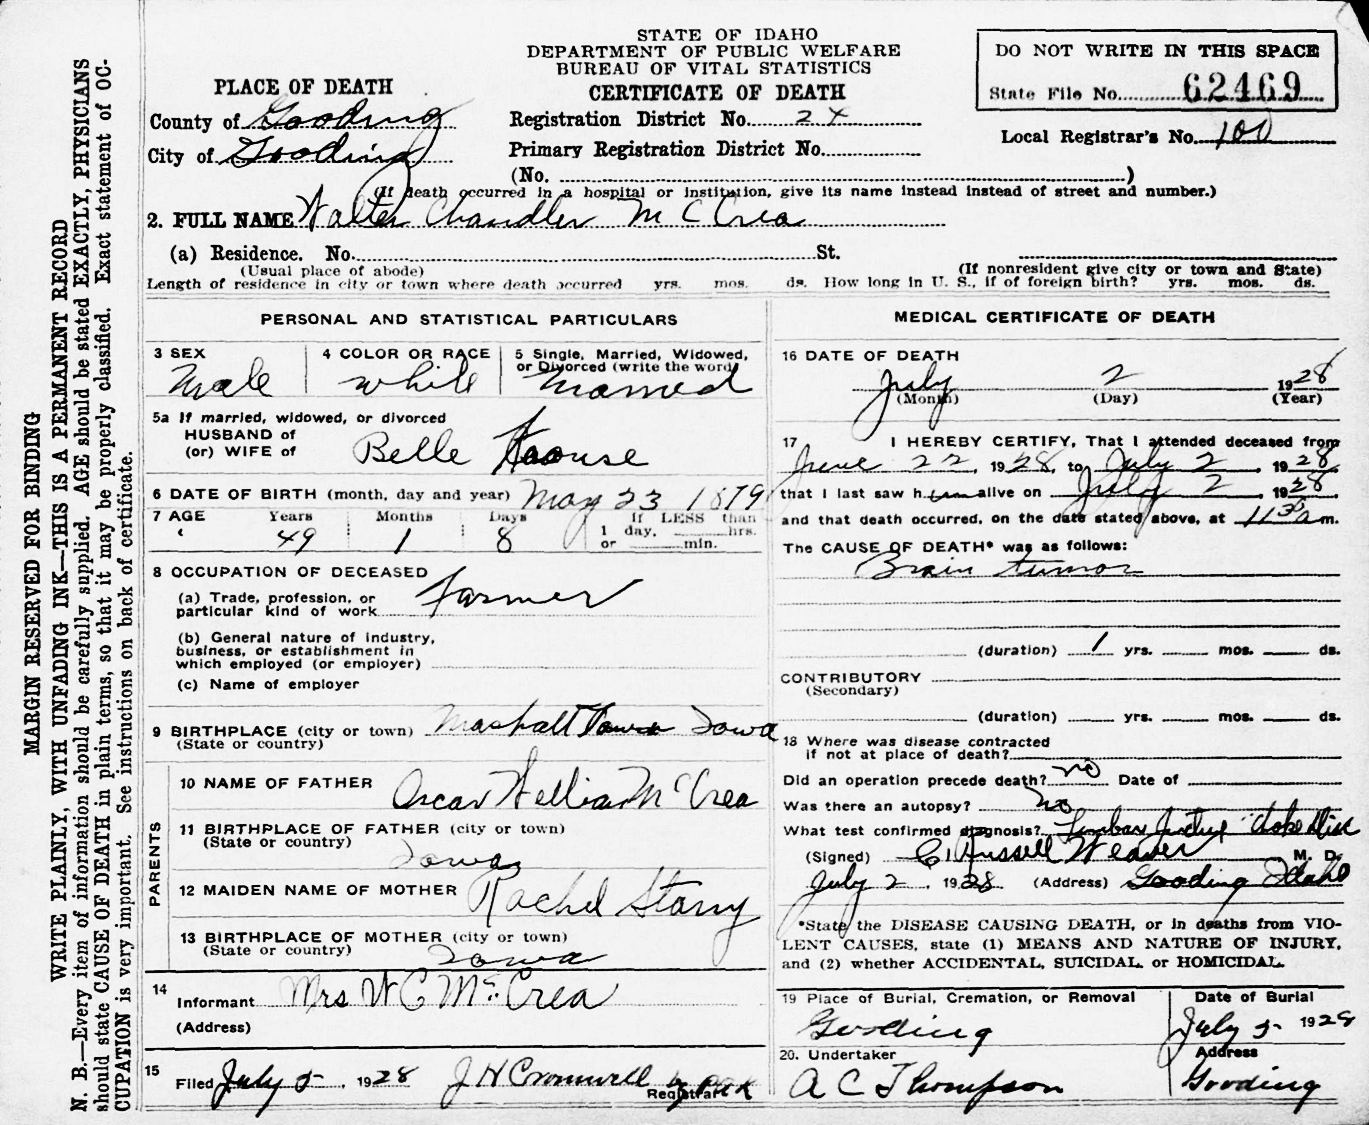 STATE OF IDAHO
DEPARTMENT OF PUBLIC WELFARE
BUREAU OF VITAL STATISTICS
CERTIFICATE OF DEATH
DO NOT WRITE IN THIS SPACE
State File No. 62469
Local Registrar's No. 100
PLACE OF DEATH
County of Gooding
City of Gooding
Registration District No. 24
Primary Registration District No.
(No. )
(If death occurred in a hospital or institution, give its name instead instead of street and number.)
2. FULL NAME Walter Chandler McCrea
(a) Residence. No. St.
(Usual place of abode) (If nonresident give city or town and State)
Length of residence in city or town where death occurred yrs. mos. ds. How long in U. S., if of foreign birth? yrs. mos. ds.
PERSONAL AND STATISTICAL PARTICULARS
3 SEX
Male
4 COLOR OR RACE
white
5 Single, Married, Widowed, or Divorced (write the word)
Married
5a If married, widowed, or divorced
HUSBAND of
(or) WIFE of
Belle
6 DATE OF BIRTH (month, day and year) May 23 1879
7 AGE Years Months Days If LESS than
49 1 8 1 day, hrs.
or min.
8 OCCUPATION OF DECEASED
(a) Trade, profession, or
particular kind of work Farmer
(b) General nature of industry,
business, or establishment in
which employed (or employer)
(c) Name of employer
9 BIRTHPLACE (city or town) Iowa
(State or country)
PARENTS
10 NAME OF FATHER Oscar William McCrea
11 BIRTHPLACE OF FATHER (city or town)
(State or country)
Iowa
12 MAIDEN NAME OF MOTHER Rachel Starry
13 BIRTHPLACE OF MOTHER (city or town)
(State or country) Iowa
14
Informant Mrs W C McCrea
(Address)
15
Filed July 5, 1928 J H Cromwell
Registrar
MEDICAL CERTIFICATE OF DEATH
16 DATE OF DEATH
July 2 1928
(Month) (Day) (Year)
17 I HEREBY CERTIFY, That I attended deceased from
June 22, 1928, to July 2, 1928
that I last saw him alive on July 2, 1928
and that death occurred, on the date stated above, at 11 30 a m.
The CAUSE OF DEATH* was as follows:
Brain tumor
(duration) 1 yrs. mos. ds.
CONTRIBUTORY
(Secondary)
(duration) yrs. mos. ds.
18 Where was disease contracted
if not at place of death?
Did an operation precede death? no Date of
Was there an autopsy? no
What test confirmed diagnosis?
(Signed) C. Russell Weaver M. D.
July 2, 1928 (Address) Gooding Idaho
*State the DISEASE CAUSING DEATH, or in deaths from VIO-
LENT CAUSES, state (1) MEANS AND NATURE OF INJURY,
and (2) whether ACCIDENTAL, SUICIDAL or HOMICIDAL.
19 Place of Burial, Cremation, or Removal Date of Burial
Gooding July 5 1928
20. Undertaker Address
A C Thompson Gooding
MARGIN RESERVED FOR BINDING
WRITE PLAINLY, WITH UNFADING INK—THIS IS A PERMANENT RECORD
N. B.—Every item of information should be carefully supplied. AGE should be stated EXACTLY, PHYSICIANS
should state CAUSE OF DEATH in plain terms, so that it may be properly classified. Exact statement of OC-
CUPATION is very important. See instructions on back of certificate.